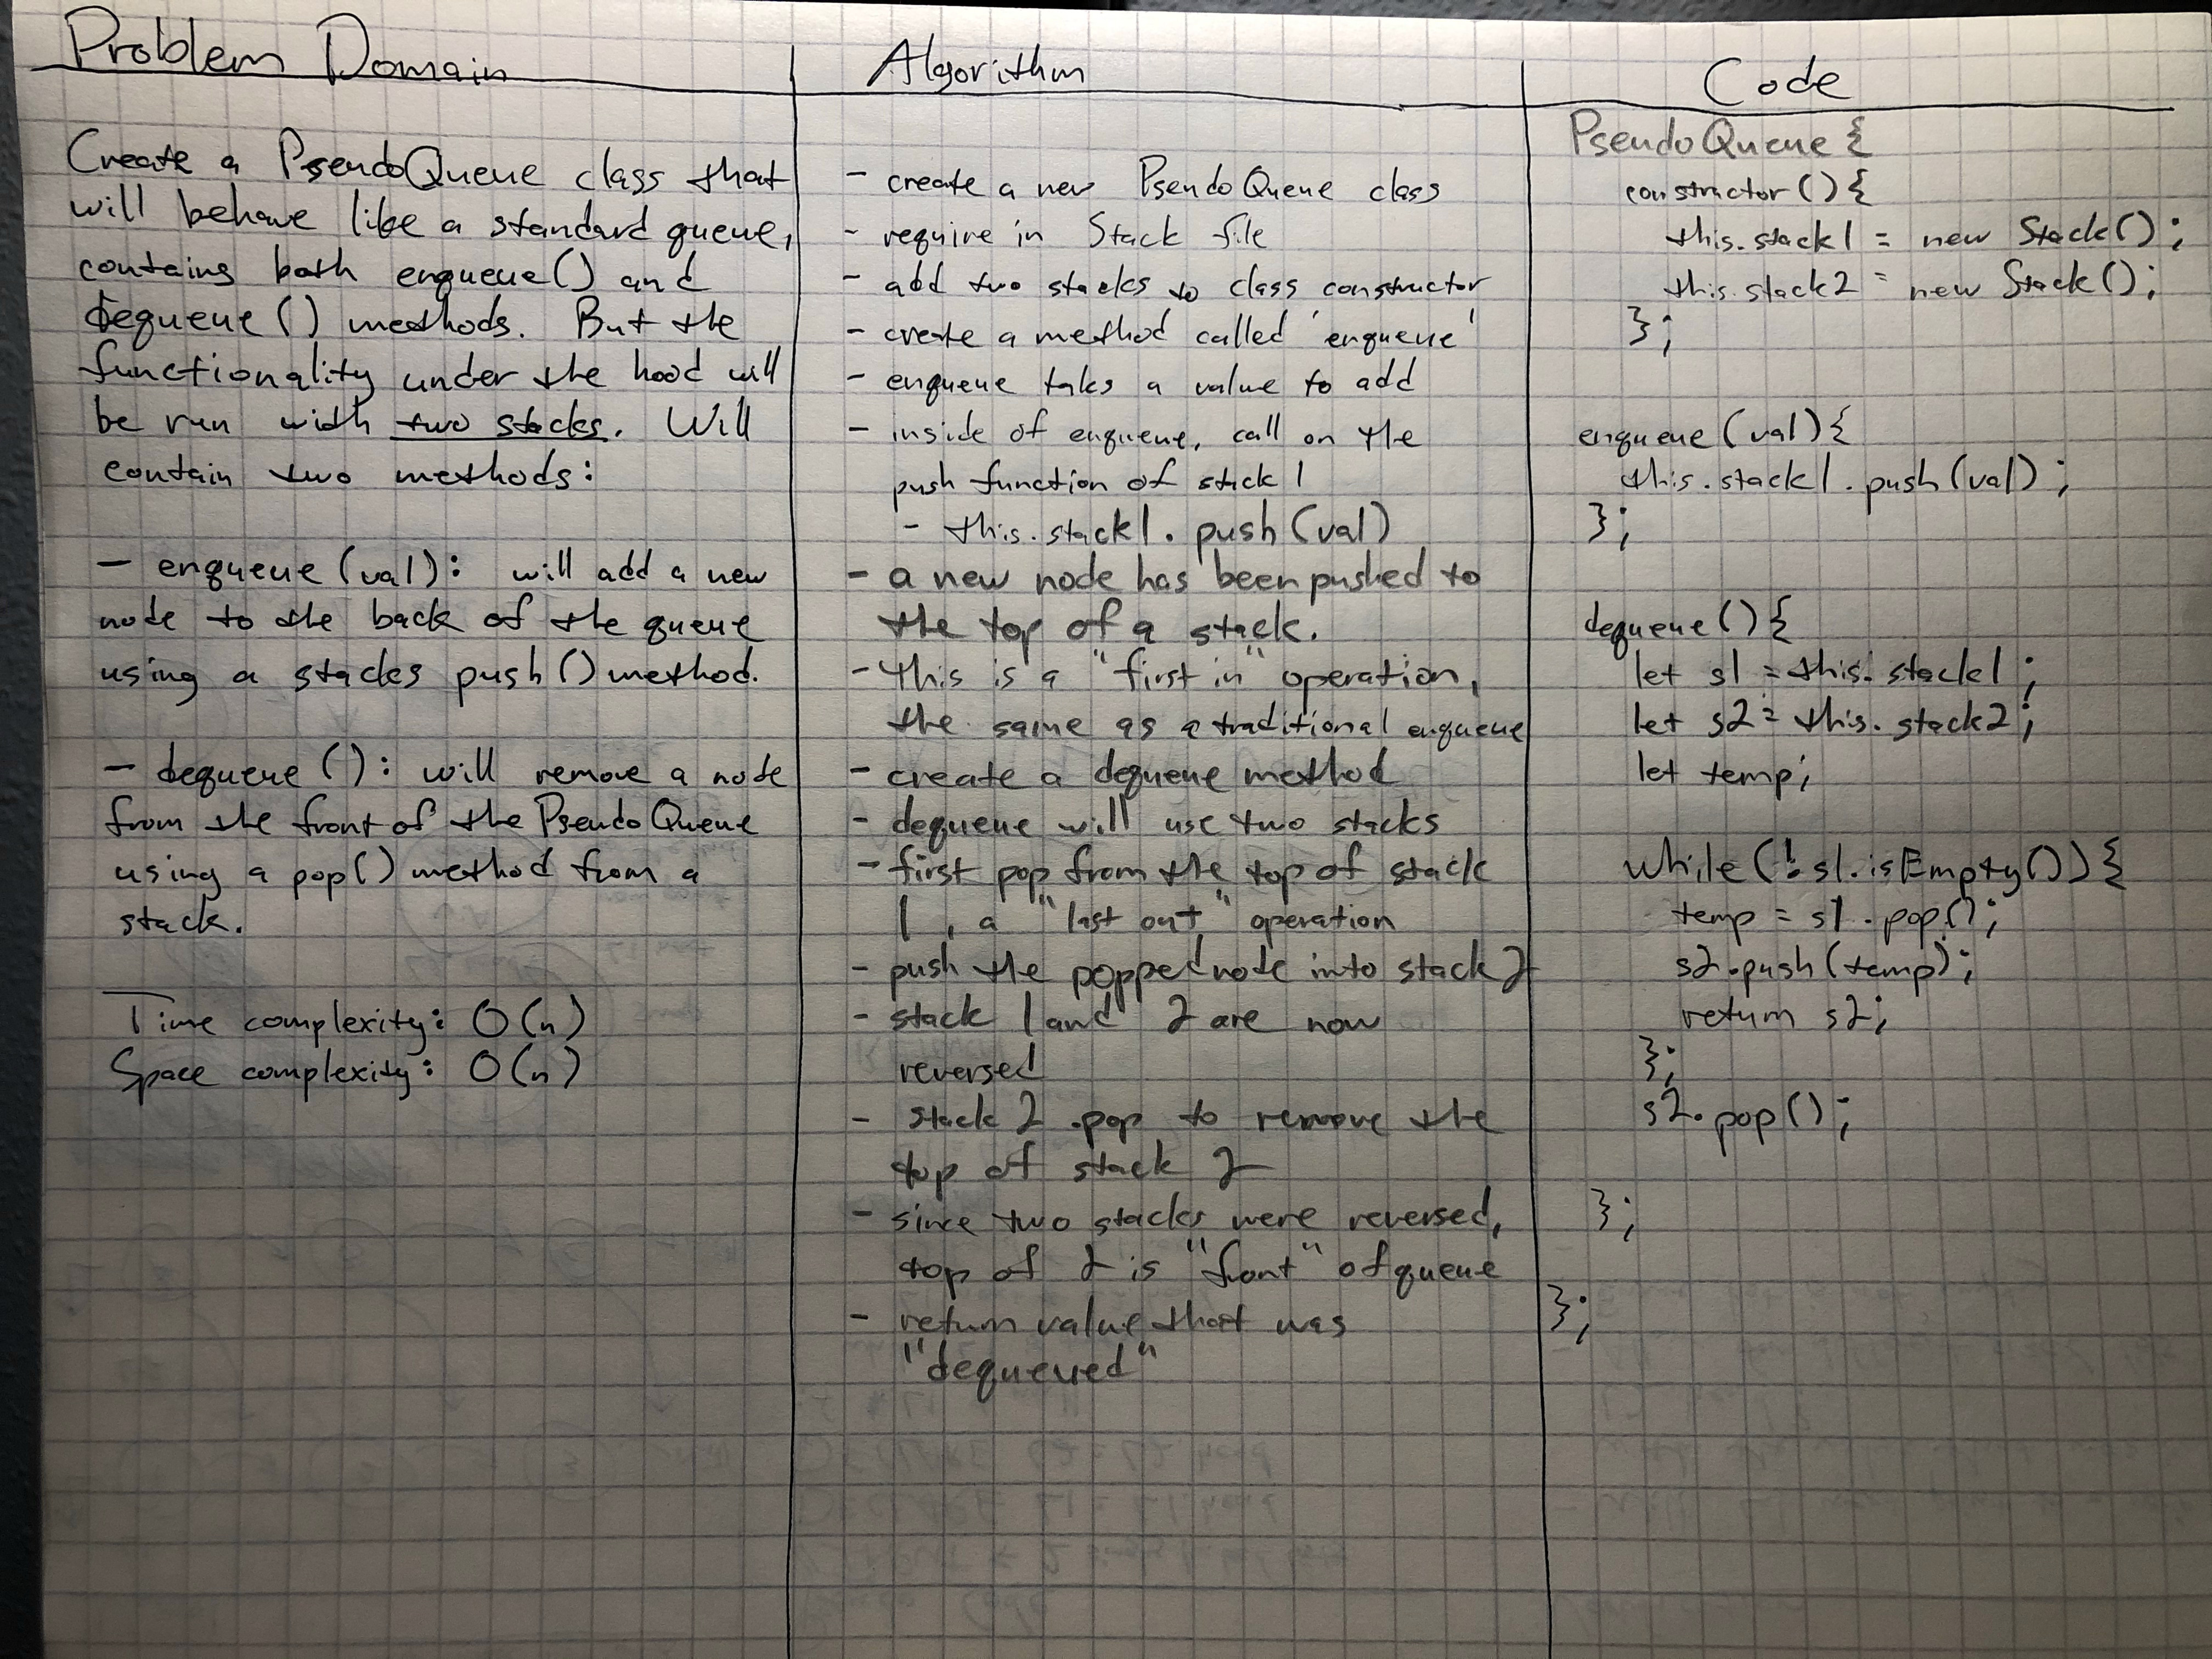 Problem Domain
Create a PseudoQueue class that
will behave like a standard queue,
contains both enqueue() and
dequeue() methods. But the
functionality under the hood will
be run with two stacks. Will
contain two methods:
- enqueue (val): will add a new
node to the back of the queue
using a stacks push() method.
- dequeue (): will remove a node
from the front of the PseudoQueue
using a pop() method from a
stack.
Time complexity: O(n)
Space complexity: O(n)
Algorithm
- create a new PseudoQueue class
- require in Stack file
- add two stacks to class constructor
- create a method called 'enqueue'
- enqueue takes a value to add
- inside of enqueue, call on the
push function of stack 1
- this.stack1.push(val)
- a new node has been pushed to
the top of a stack.
- this is a "first in" operation,
the same as a traditional enqueue
- create a dequeue method
- dequeue will use two stacks
- first pop from the top of stack
1, a "last out" operation
- push the popped node into stack 2
- stack 1 and 2 are now
reversed
- stack 2 .pop to remove the
top of stack 2
- since two stacks were reversed,
top of 2 is "front" of queue
- return value that was
"dequeued"
Code
PseudoQueue {
constructor () {
this.stack1 = new Stack();
this.stack2 = new Stack();
};
enqueue (val) {
this.stack1.push(val);
};
dequeue () {
let s1 = this.stack1;
let s2 = this.stack2;
let temp;
while (!s1.isEmpty()) {
temp = s1.pop();
s2.push(temp);
return s2;
};
s2.pop();
};
};